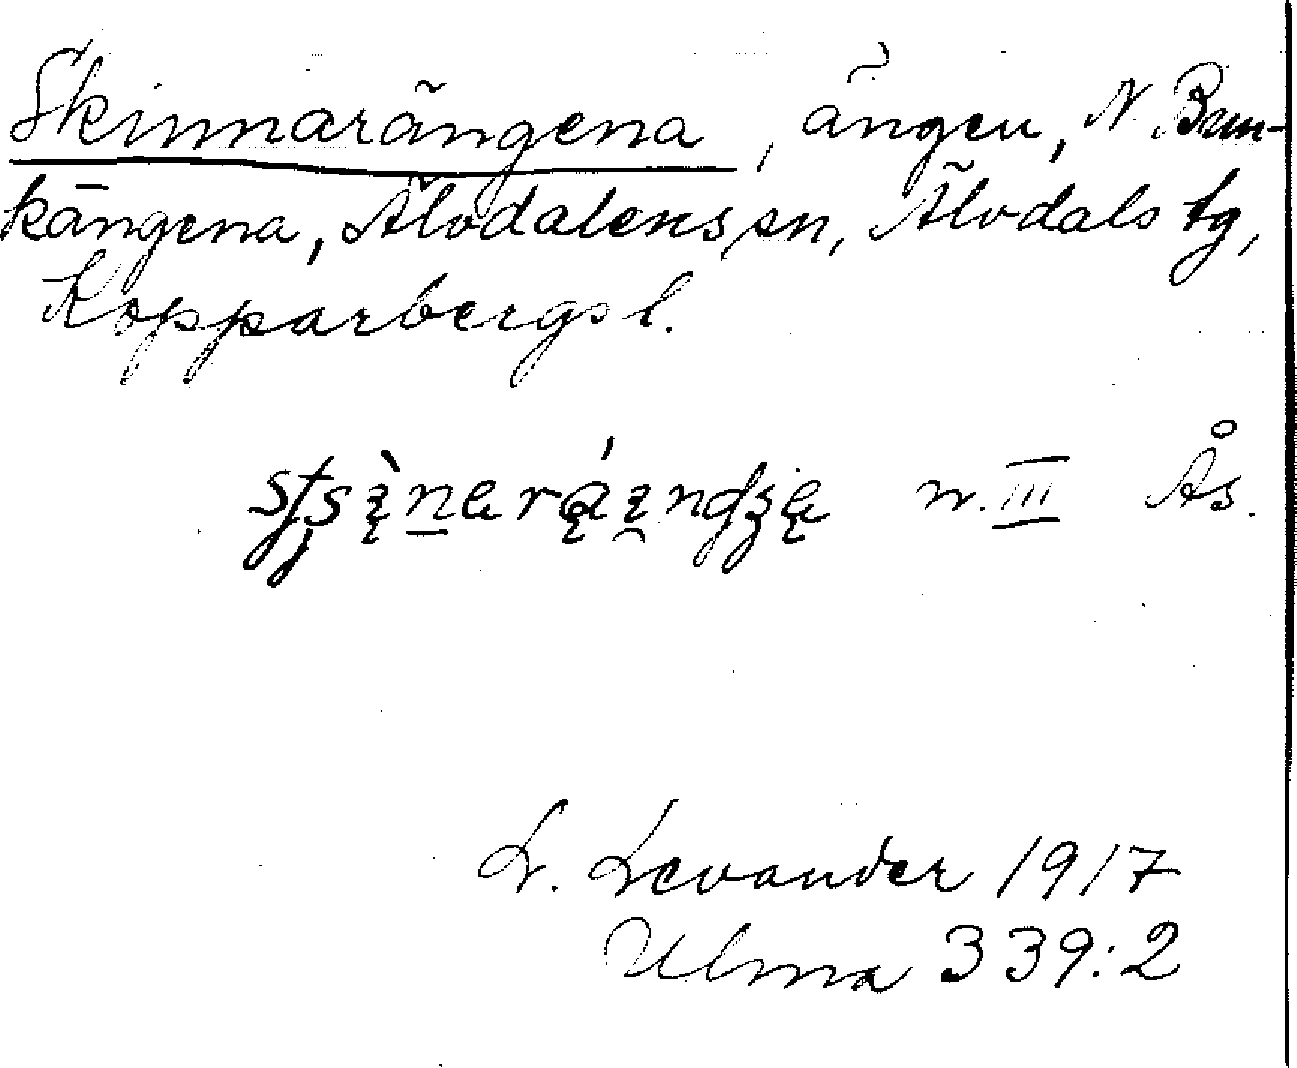 Skinnarängena, ängar, N. Brun-
kängena, Älvdalens sn, Älvdals tg,
Kopparbergs l.
n. III Ås.
L. Levander 1917
Ulma 339:2